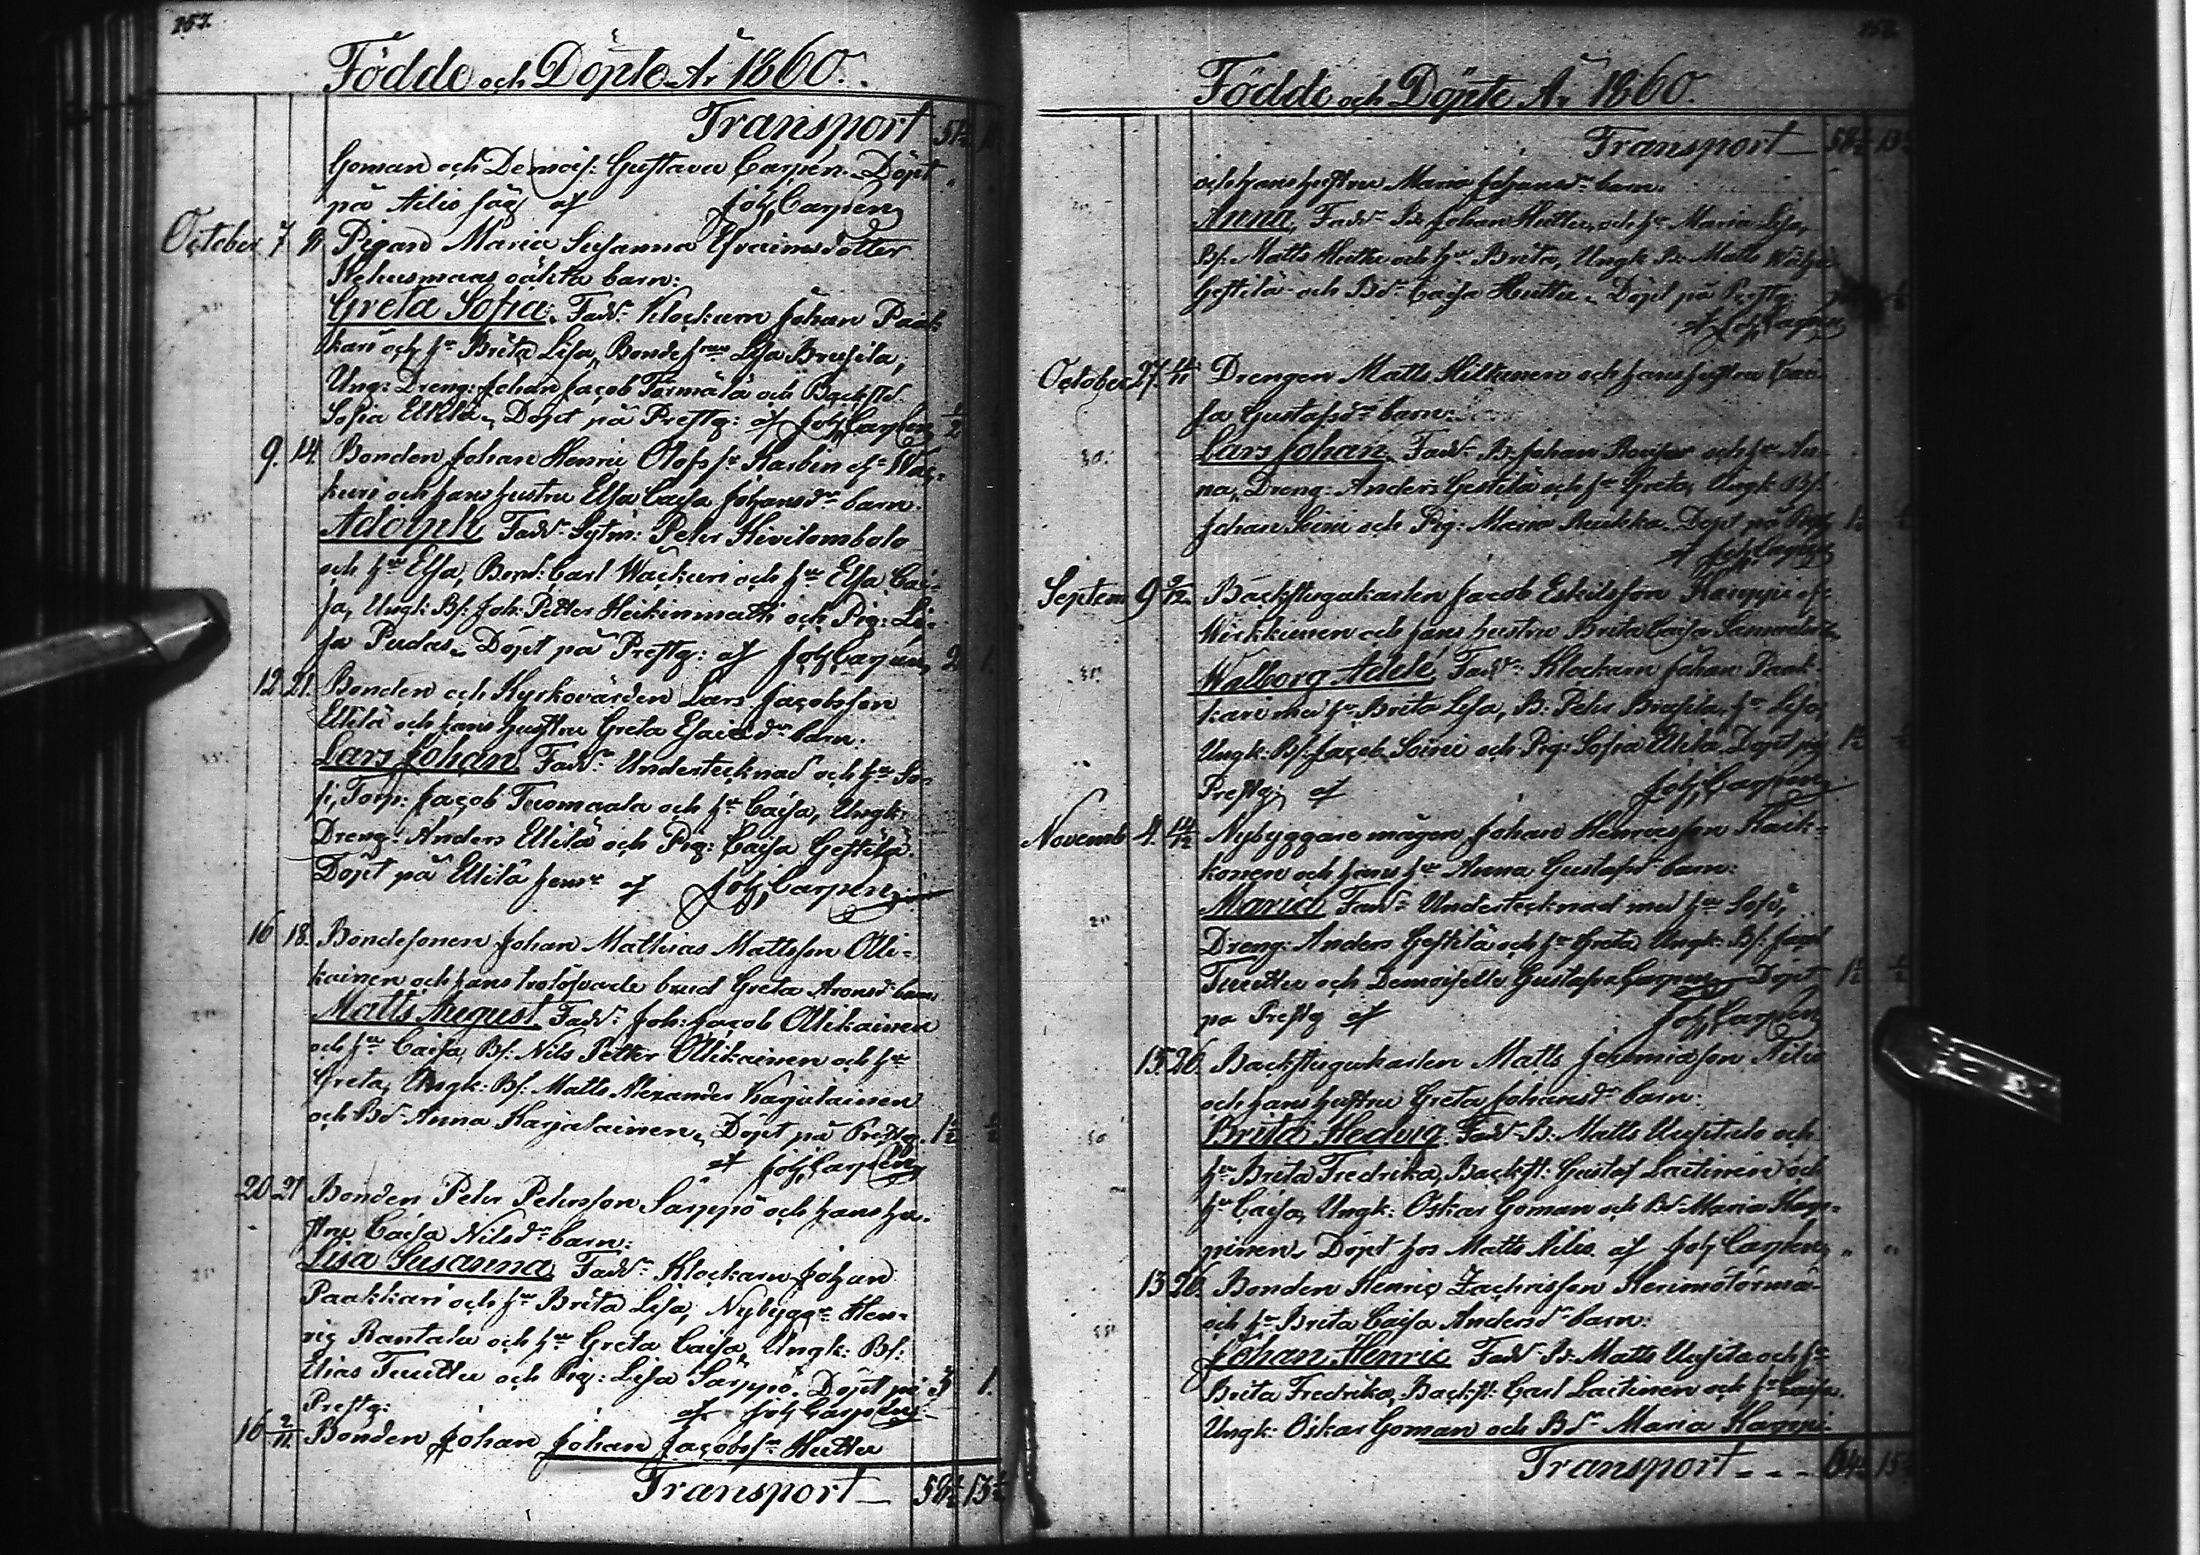 157.
Födde och Döpte År 1860.
Transport 51½
Goman och Demois: Gustava Carpén. Döpt "
på Ailis såg af Joh, Carpén
October 7 Pigan Maria Susanna Efraimsdotter
oäkta barn:
Greta Sofia. Fadd: Klockarn Johan Paak-
kari och hr Brita Lisa, Bonde Lisa Brusila,
Ung: Dreng: Johan Jacob Törmälä och Backstd
Sofia Ukkla. Döpt på Prestg: af Joh, Carpén ½
9. 14 Bonden Johan Henric Olofss:
kuri och hans hustru Elsa Caisa Johansdr barn.
Adolph. Fadd: Sytm: Peter Kivilombolo
och hu Elsa, Bond: Carl Wackuri och hu Elsa Cai-
sa, Ungk: Bs: Joh: Petter Heikinmatti och Pig: Li-
sa Pudas. Döpt på Prestg: af Joh, Carpén 2 1.
12 21. Bonden och Kyrkovärden Lars Jacobsson
Ellilä och hans hustru Greta Esaiædr barn.
Lars Johan. Fadd: Undertecknad och hu So-
fi, Torp: Jacob Tuomaala och hu Caisa, Ungk:
Dreng: Anders Ellilä och Pig: Caisa Gestilä.
Döpt på Ellilä hem: af Joh, Carpén
16 18. Bondesonen Johan Mathias Mattsson Olli-
kainen och hans trolofvade brud Greta Aronsdr barn
Matts August. Fadd: Joh: Jacob Ollikainen
och hu Caisa, Bs: Nils Petter Ollikainen och hu
Greta, Ungk: Bs: Matts Alexander Karjalainen
och Bd: Anna Karjalainen. Döpt på Prestg. 1½ ½
af Joh, Carpén
20 21 Bonden Petter Petersson Särppö och hans hu-
stru Caisa Nilsdr barn:
Lisa Susanna. Fadd: Klockarn Johan
Paakkari och hu Brita Lisa, Nybygg: Hen-
ric Rantala och hu Greta Caisa, Ungk: Bs:
Elias Tuuttu och Pig: Lisa Särppö. Döpt på 3 1.
Prestg: af Joh Carpén
16 2/11. Bonden Johan Johan Jacobss: Huttu
Transport 58½ 13½
158.
Födde och Döpte År 1860.
Transport 58½ 13½
och hans hustru Maria Johansdr barn.
Anna. Fadd: Bd Johan Huttu, och hu Maria Lisa,
Bs: Matts Huttu och hu Brita, Ungk: Bs: Matts
Gestilä och Bd: Caisa Huttu. Döpt på Prestg:
af Joh, Carpén
October 27. Drengen Matts Hiltunen och hans hustru Cai-
sa Gustafsdr barn:
Lars Johan. Fadd: Bd Johan och hu An-
na, Dreng: Anders Gestilä och hu Greta, Ungk: Bs:
Johan Soini och Pig: Maria Ruukka. Döpt på Prestg
af Joh, Carpén
Septem 9 Backstugukarlen Jacob Eskilsson Karppi
och hans hustru Brita Caisa
Walborg Adele. Fadd: Klockarn Johan Paak-
kari med hu Brita Lisa, B: Petter Brusila, hu Lisa,
Ungk: Bs: Jacob Soini och Pig: Sofia Ukkla. Döpt på 1½ ½
Prestg: af Joh, Carpén
Novemb 4. Nybyggare mågen Johan Henricsson Kaik-
konen och hans hu Anna Gustafsdr barn:
Maria. Fadd: Undertecknad med hu Sofi,
Dreng: Anders Gestilä och hu Greta, Ungk: Bs:
Tuuttu och Demoiselle Gustafva Carpén. Döpt 1½ ½
på Prestg af Joh, Carpén
15. 26. Backstugukarlen Matts Jeremiæsson Ailis
och hans hustru Greta Johansdr barn:
Brita Hedvig. Fadd: B: Matts och
hu Brita Fredrika, Backst: Gustaf Laitinen och
hu Caisa, Ungk: Oskar Goman och Bd: Maria Karp-
pinen. Döpt hos Matts Ailis af Joh, Carpén " "
15 26. Bonden Henric Zachrisson
och hu Brita Caisa Andersdr barn:
Johan Henric. Fadd: Bd: Matts och hu
Brita Fredrika, Backst: Carl Laitinen och hu Caisa,
Ungk: Oskar Goman och Bd: Maria Karppi-
Transport - - - 64½ 15½